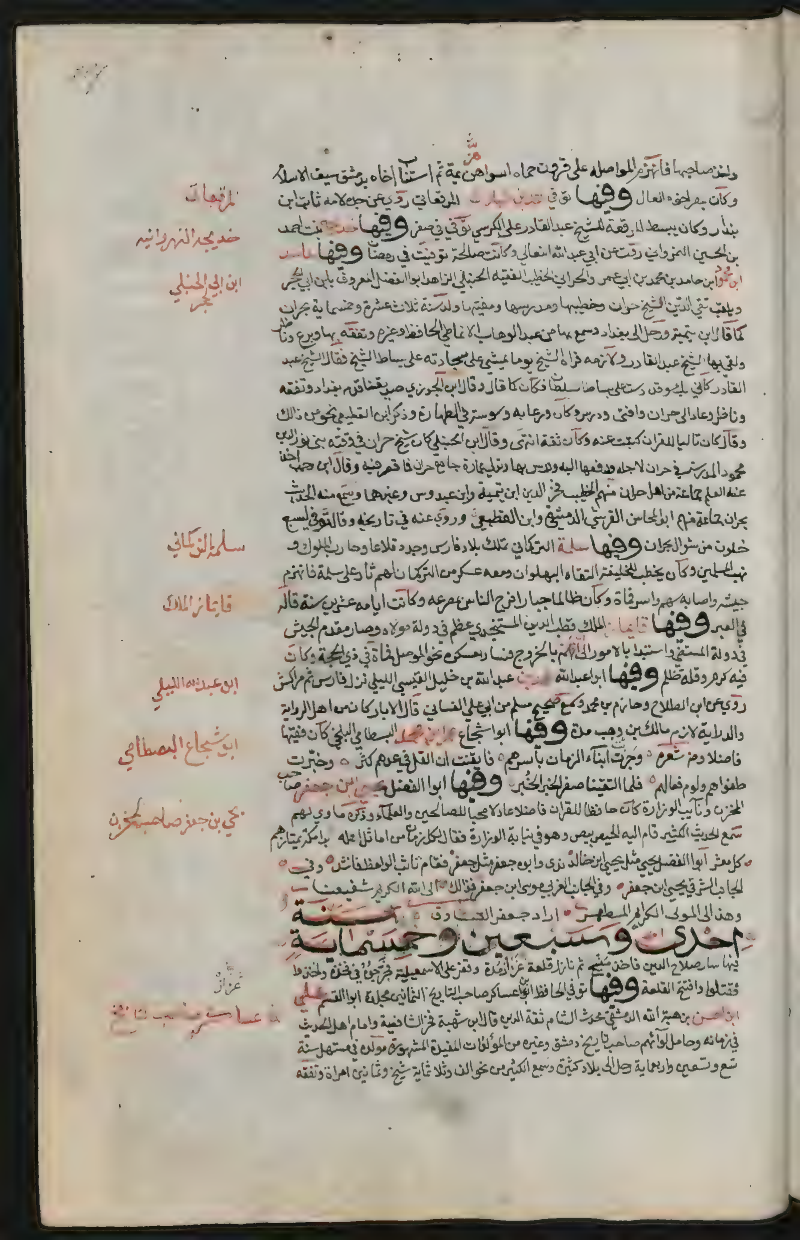 واخذ صاحبها فانهزم المواصله على قرون حماه اسوا هزيمة ثم استناب اخاه بدمشق سيف الاسلام
وكان بمصر اخوه العادل وفيها توفي المرقعاتي روى عن جده لامه ثابت ابن
بندار وكان يبسط المرقعة للشيخ عبد القادر على الكرسي توفي في صفر وفيها خديجة بنت احمد
بن الحسين النهرواني روت عن ابي عبد الله النعالي وكانت صالحة توفيت في رمضان وفيها حامد
ابن محمود ابن حامد بن محمد بن ابي عمر والحراني الخطيب الفقيه الحنبلي الزاهد ابو الفضل المعروف بابن ابي الحجر
ويلقب تقي الدين الشيخ حران وخطيبها ومدرسها ومفتيها ولد سنة ثلاث عشرة وخمسماية بحران
كما قال ابن تيمية ورحل الى بغداد وسمع بها من عبد الوهاب الانماطي الحافظ وغيره وتفقه بها وبرع وناظر
ولقي بها الشيخ عبد القادر ولازمه فراه الشيخ يوما يمشي على سجادته على بساط الشيخ فقال الشيخ عبد
القادر كاني بك وقد دست على بساط السلطان فكان كما قال وقال ابن الجوزي صديقنا قدم بغداد وتفقه
وناظر وعاد الى حران وافتى ودرس وكان ورعا به وسوسة في الطهارة وذكر ابن القطيعي نحو من ذالك
وقال كان تاليا للقران كتبت عنه وكان ثقة انتهى وقال ابن الحنبلي كان شيخ حران في وقته بنى نور الدين
محمود المدرسة في حران لاجله ودفعها اليه ودرس بها وتولى عمارة جامع حران فما قصر فيه وقال ابن حمدان اخذ
عنه العلم جماعة من اهل حران منهم الخطيب فخر الدين ابن تيمية وابن عبدوس وغيرهما وسمع منه الحديث
بحران جماعة منهم ابو المحاسن القرشي الدمشقي وابن القطيعي وروى عنه في تاريخه وقال توفي لسبع
خلون من شوال بحران وفيها سلمة التركماني تملك بلاد فارس وجدد قلاعا وحارب الملوك و
نهب المسلمين وكان يخطب للخليفة التقاه البهلوان ومعه عسكر من التركمان لهم ثار على سلمة فانهزم
جيشه واصابه سهم واسر فمات وكان ظالما جبارا فرح الناس بمصرعه وكانت ايامه عشرين سنة قاله
في العبر وفيها قايماز الملك قطب الدين المستنجدي عظم في دولة مولاه وصار مقدم الجيش
في دولة المستضي واستبد بالامور الى ان هم بالخروج فسار بعسكره نحو الموصل فمات في ذي الحجة وكان
فيه كرم وقلة ظلم وفيها ابو عبد الله عبد الله بن خليل القيسي اللبلي نزيل فارس ثم مراكش
روى عن ابن الطلاع وحازم بن محمد وسمع صحيح مسلم من ابي علي الغساني قال الابار كان من اهل الرواية
والدراية لازم مالك بن وهيب مدة وفيها ابو شجاع عمر بن محمد البسطامي البلخي كان فقيها
فاضلا ومن شعره ٥ وجربت ابناء الزمان باسرهم ٥ فايقنت ان القل في عدهم كثر ٥ وخبرت
طغواهم ولوم فعالهم ٥ فلما التقينا صغر الخبر الخبر وفيها ابو الفضل يحيى ابن جعفر صاحب
المخزن ونايب الوزارة كان حافظا للقران فاضلا عادلا محبا للصالحين والعلماء
سمع الحديث الكثير قام اليه الحيص بيص وهو في نيابة الوزارة فقال
٥ ابو الفضل يحيى مثل يحيى ابن خالد ندى وابوه جعفر مثل جعفر فقام نائب الواعظ فانشد ٥ وفي
الجانب الشرقي يحيى ابن جعفر ٥ وفي الجانب الغربي موسى ابن جعفر فذالك الى الله الكريم شفيعنا
وهذا الى المولى الكريم المطهر ٥ اراد جعفر الصادق سنة
احدى وسبعين وخمسماية
فيها سار صلاح الدين فاخذ منبج ثم نازل قلعة عزاز مدة وقفز عليه الاسمعيلية فجرحوه في فخذه واخذوا
فقتلوا وافتتح القلعة وفيها توفي الحافظ ابن عساكر صاحب التاريخ الثمانين مجلدة ابو القسم علي
ابن الحسن بن هبة الله الدمشقي محدث الشام ثقة الدين قال ابن شهبة فخر الشافعية وامام اهل الحديث
في زمانه وحامل لوائهم صاحب تاريخ دمشق وغيره من المؤلفات المفيدة المشهورة مولده في مستهل سنة
تسع وتسعين واربعماية رحل الى بلاد كثيرة وسمع الكثير من نحو الف وثلاثماية شيخ وثمانين امراة وتفقه
المرقعات
خديجه النهروانيه
ابن ابي الحنبلي
حجر
سلمة التركماني
قايماز الملك
ابو عبد الله اللبلي
ابو شجاع البسطامي
يحيى بن جعفر صاحب المخزن
عزاز
عساكر صاحب التاريخ